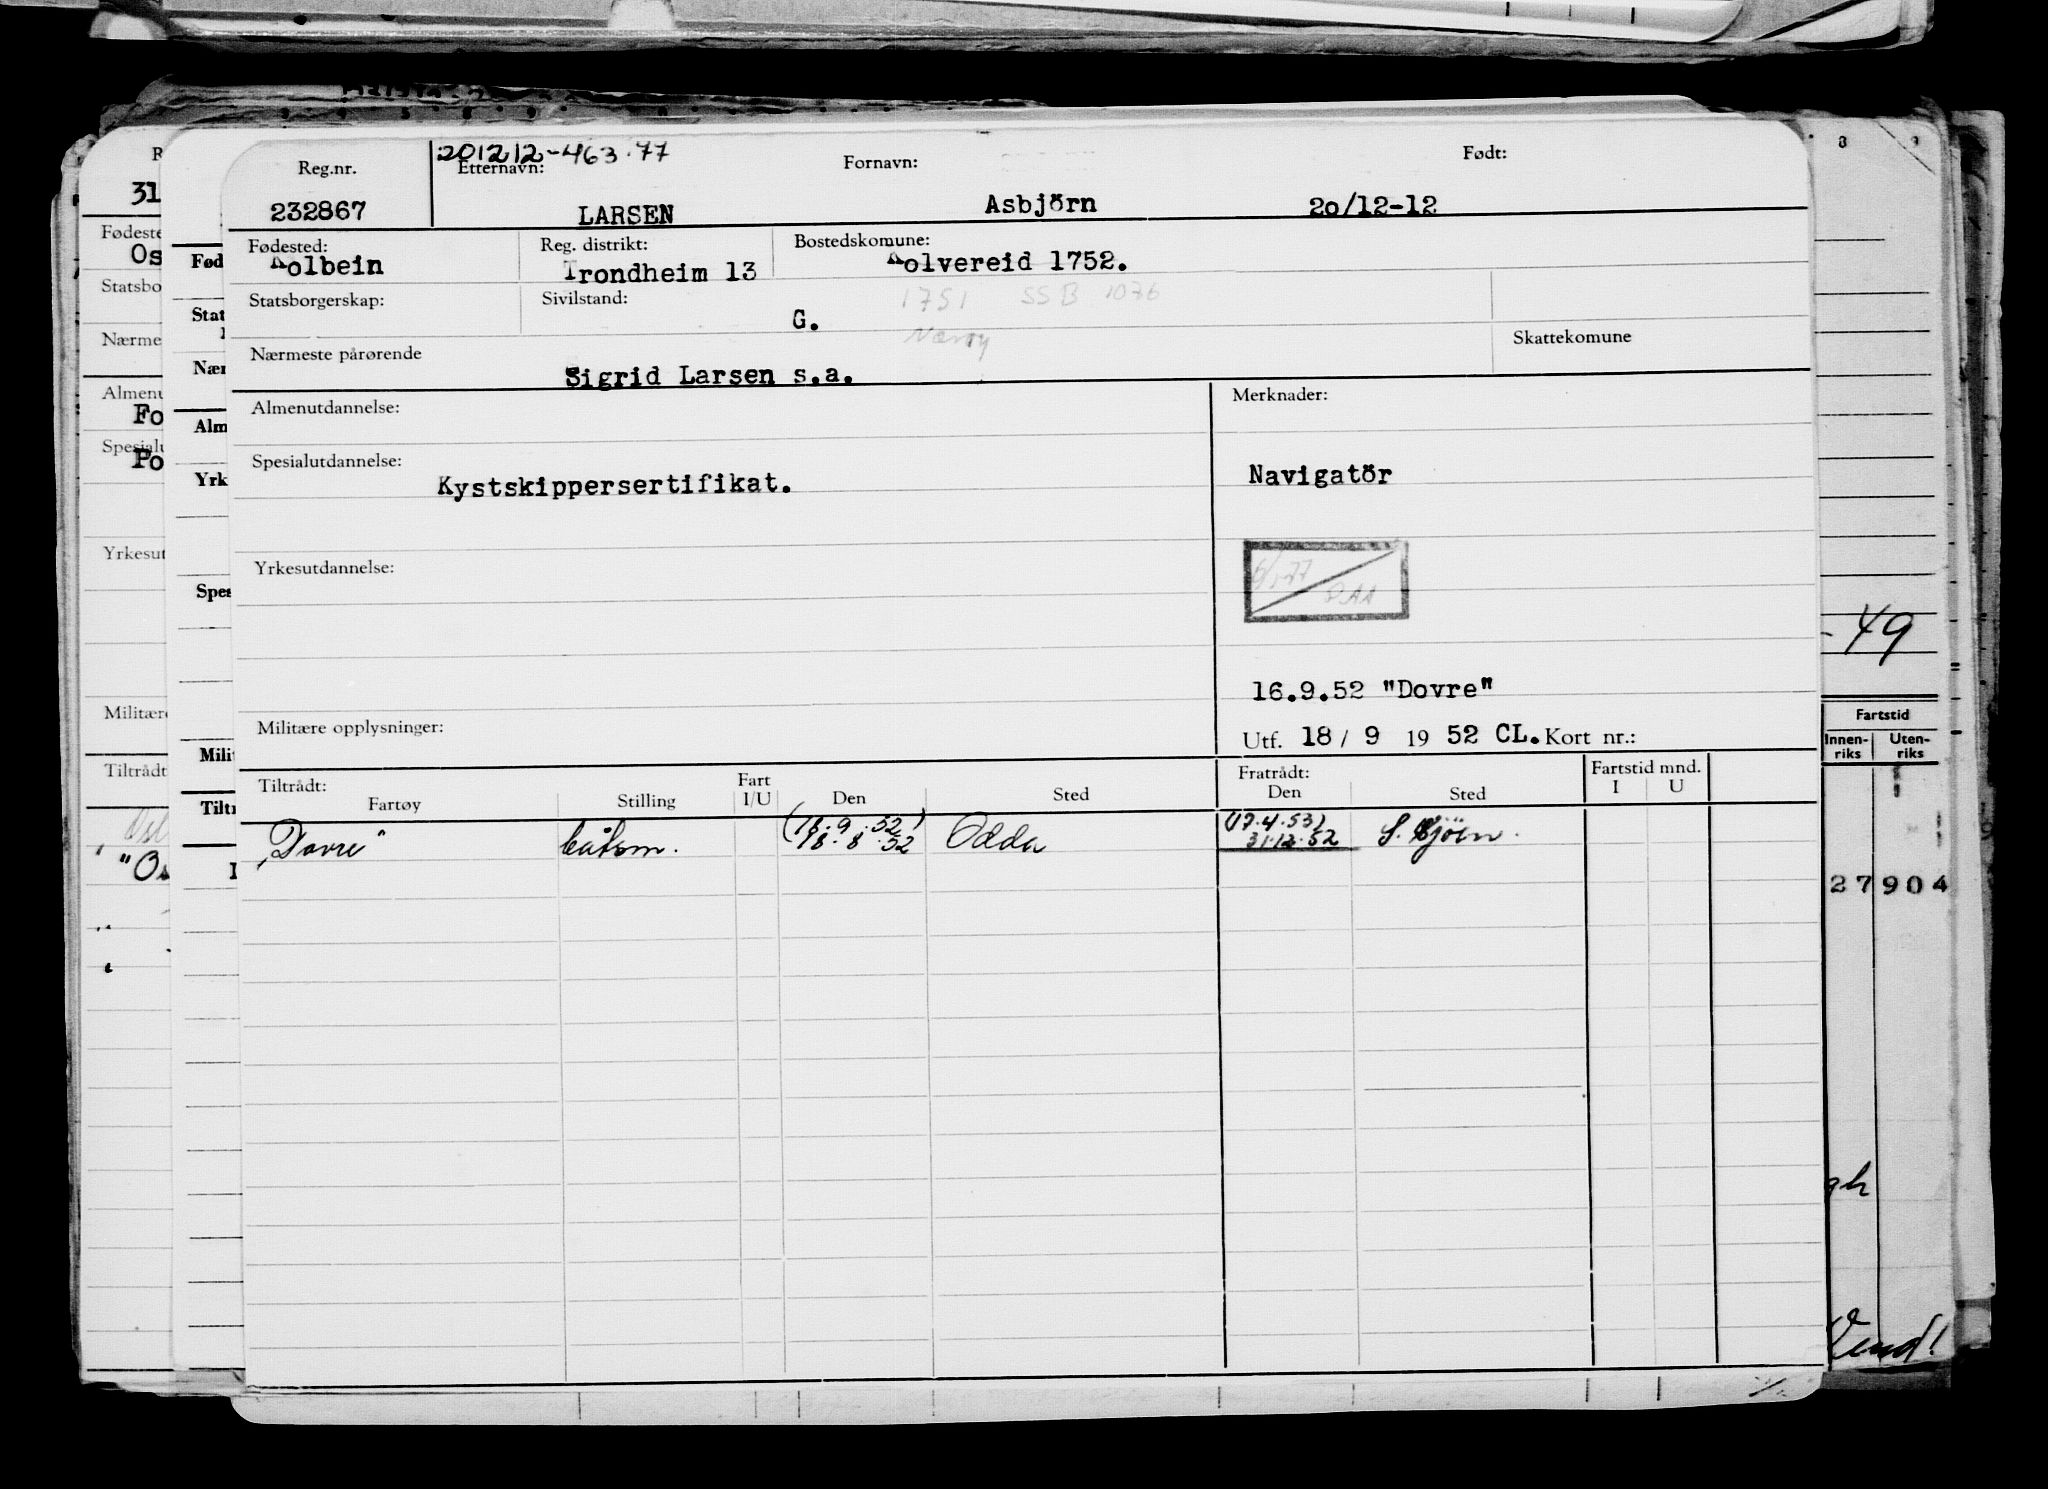 201212-463.77
Reg.nr. Etternavn: Fornavn: Født:
232867 LARSEN Asbjörn 20/12-12
Fødested: Reg. distrikt: Bostedskomune:
Kolbein Trondheim 13 Kolvereid 1752.
Statsborgerskap: Sivilstand: 1751 SSB 1076
G.
Nærøy
Nærmeste pårørende Skattekomune
Sigrid Larsen s.a.
Almenutdannelse: Merknader:
Spesialutdannelse:
Kystskippersertifikat. Navigatör
Yrkesutdannelse:
16.9.52 "Dovre"
Militære opplysninger:
Utf. 18 / 9 19 52 CL. Kort nr.:
Tiltrådt: Fart Fratrådt: Fartstid mnd.
Fartøy Stilling I/U Den Sted Den Sted I U
(16.9.52) (17.4.53)
"Dovre" båtsm. 18.8.52 Odda 31.12.52 S.
- 49
Fartstid
Innen-riks Uten-riks
27904
Vend!